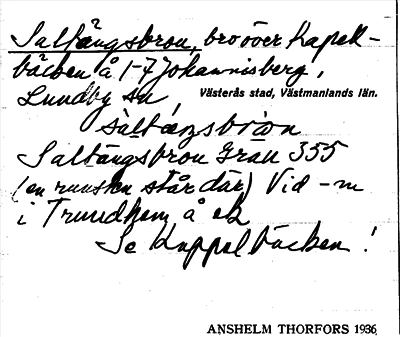 Saltängsbron, bro över Kapell-
bäcken å 1-7 Johannisberg,
Lundby sn, Västerås stad, Västmanlands län.
saltæŋsbròn
Saltängsbron Grau 355
(en runsten står där) Vid -m
i Trundhem å ek
Se Kappelbäcken!
ANSHELM THORFORS 1936